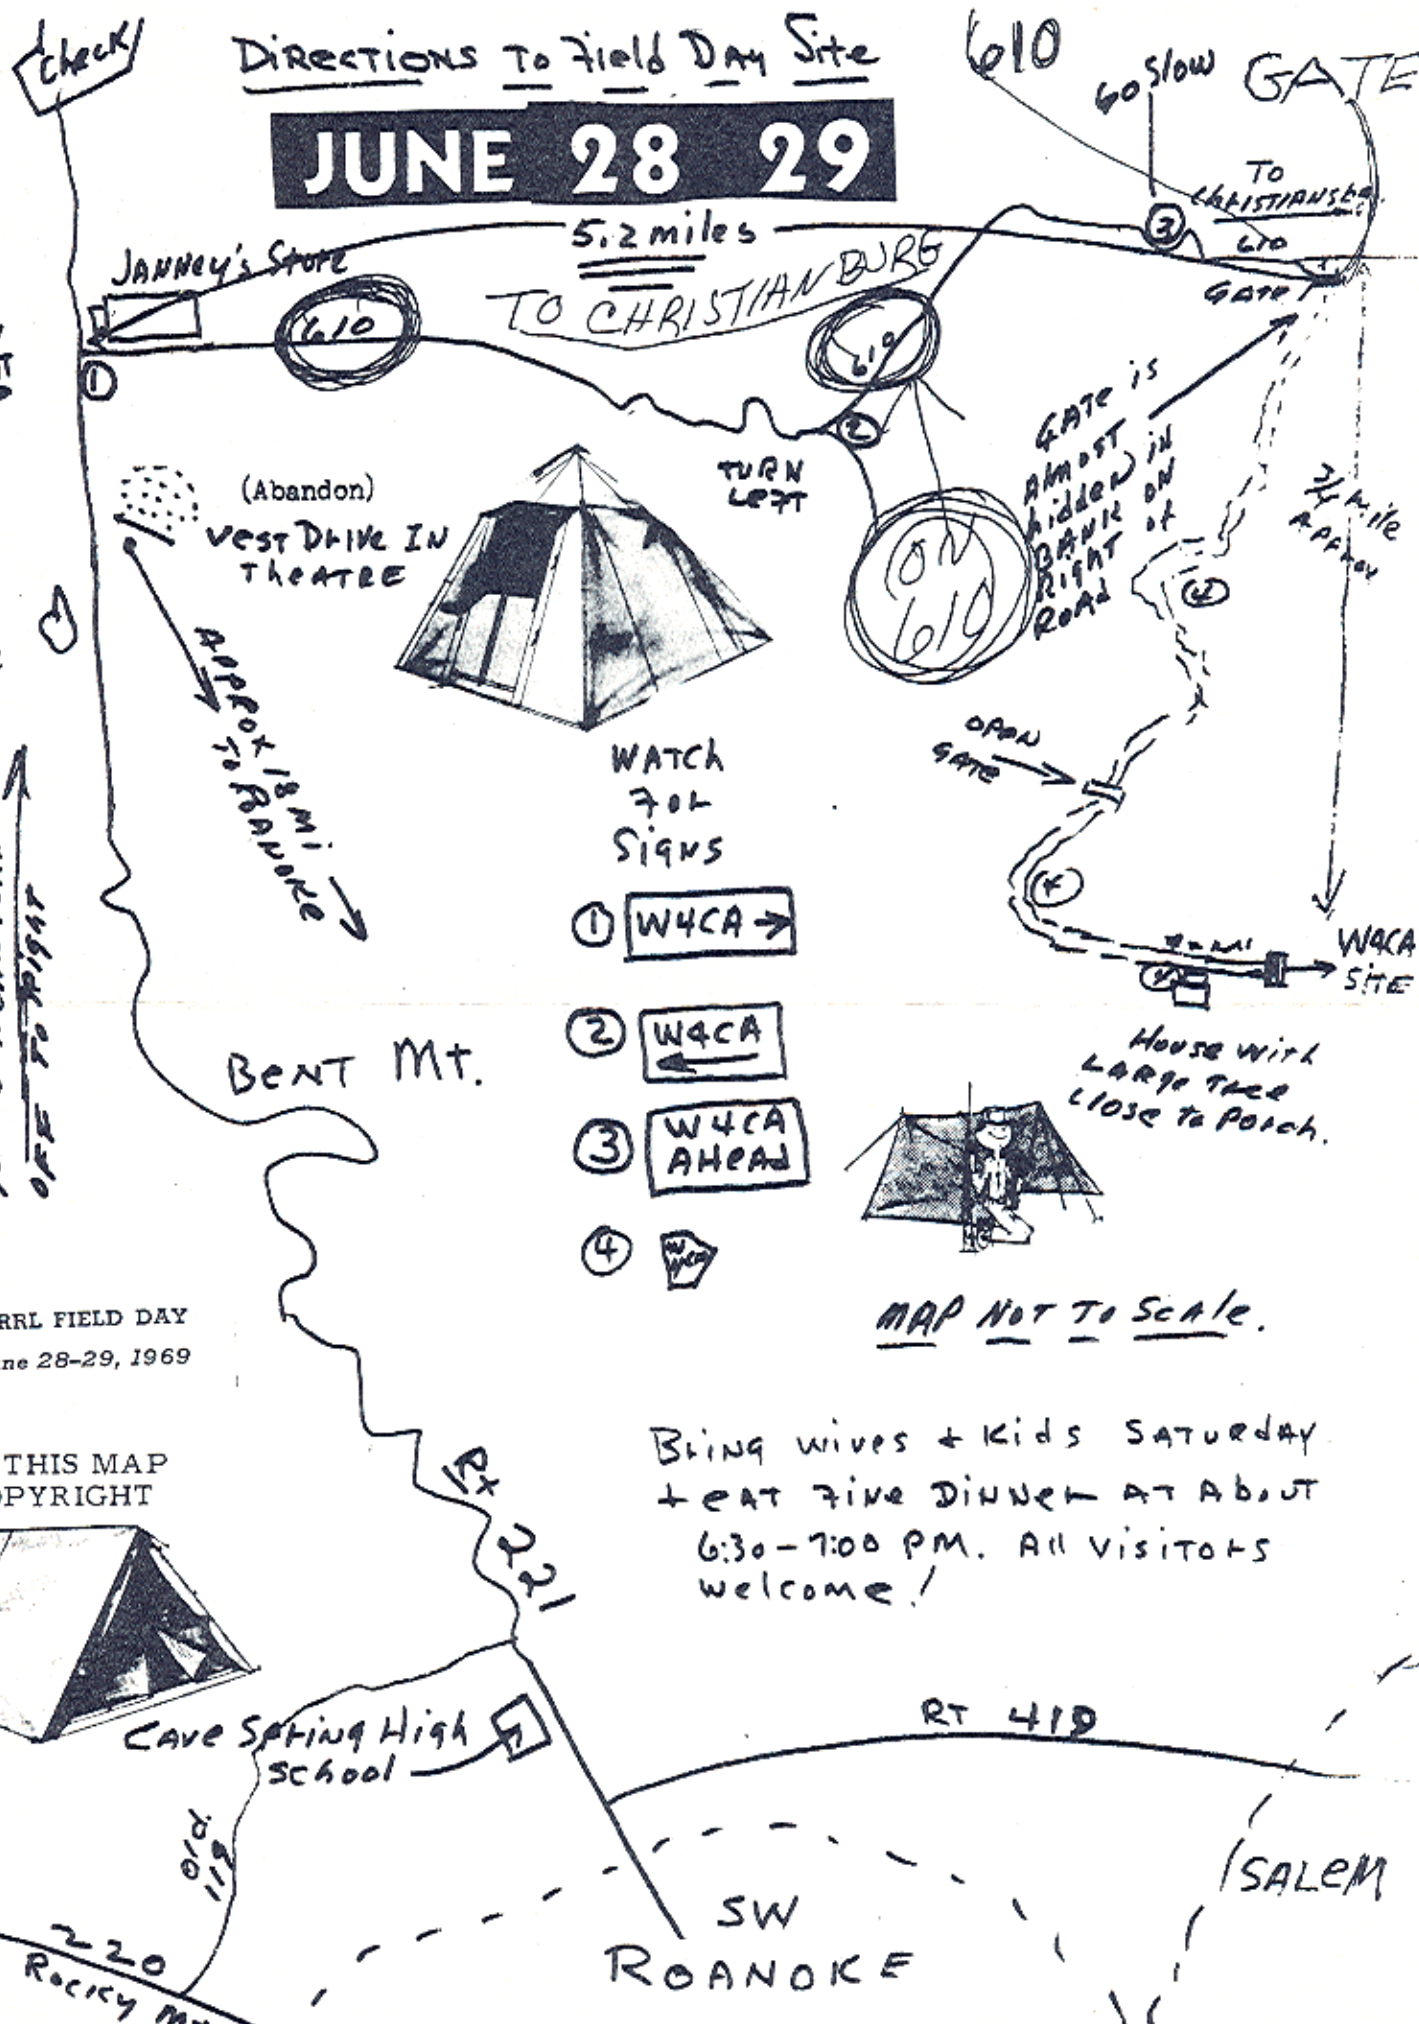 Check
DIRECTIONS TO Field DAY Site
610
GO Slow
GATE
JUNE 28 29
TO
CHRISTIANSB
610
3
5.2 miles
JANNey's Store
TO CHRISTIANBURG
GATE
610
610
1
2
TURN
LEFT
GATE is
AlMOST
hidden in
BANK ON
Right of
ROAD
ON
610
3/4 Mile
Approx
(Abandon)
VEST Drive IN
TheATRE
APPROX 18 Mi
To ROANOKE
4
OPEN
GATE
4
WATCh
FOR
SigNS
1 W4CA
2 W4CA
3 W4CA
AHEAD
4 W4CA
W4CA
SITE
4
House with
LARge Tree
Close to PORch.
BeNT Mt.
OFF TO RIGHT
RRL FIELD DAY
ne 28-29, 1969
MAP NOT To ScAle.
THIS MAP
OPYRIGHT
Rt
221
Bring wives + Kids SATURdAY
+ eAT FiNe DiNNer AT About
6:30-7:00 PM. All VisiTors
welcome!
CAVe SPriNg High
School
RT 419
Old
119
220
ROCKY M
SW
ROANOKE
SALeM